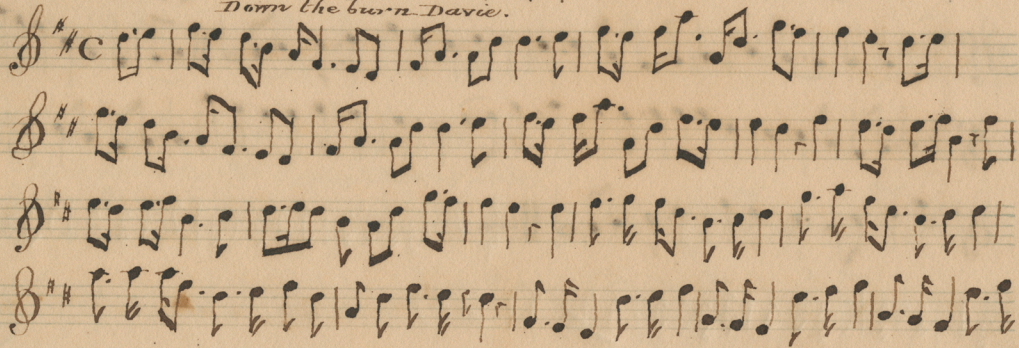 Down the burn Davie.